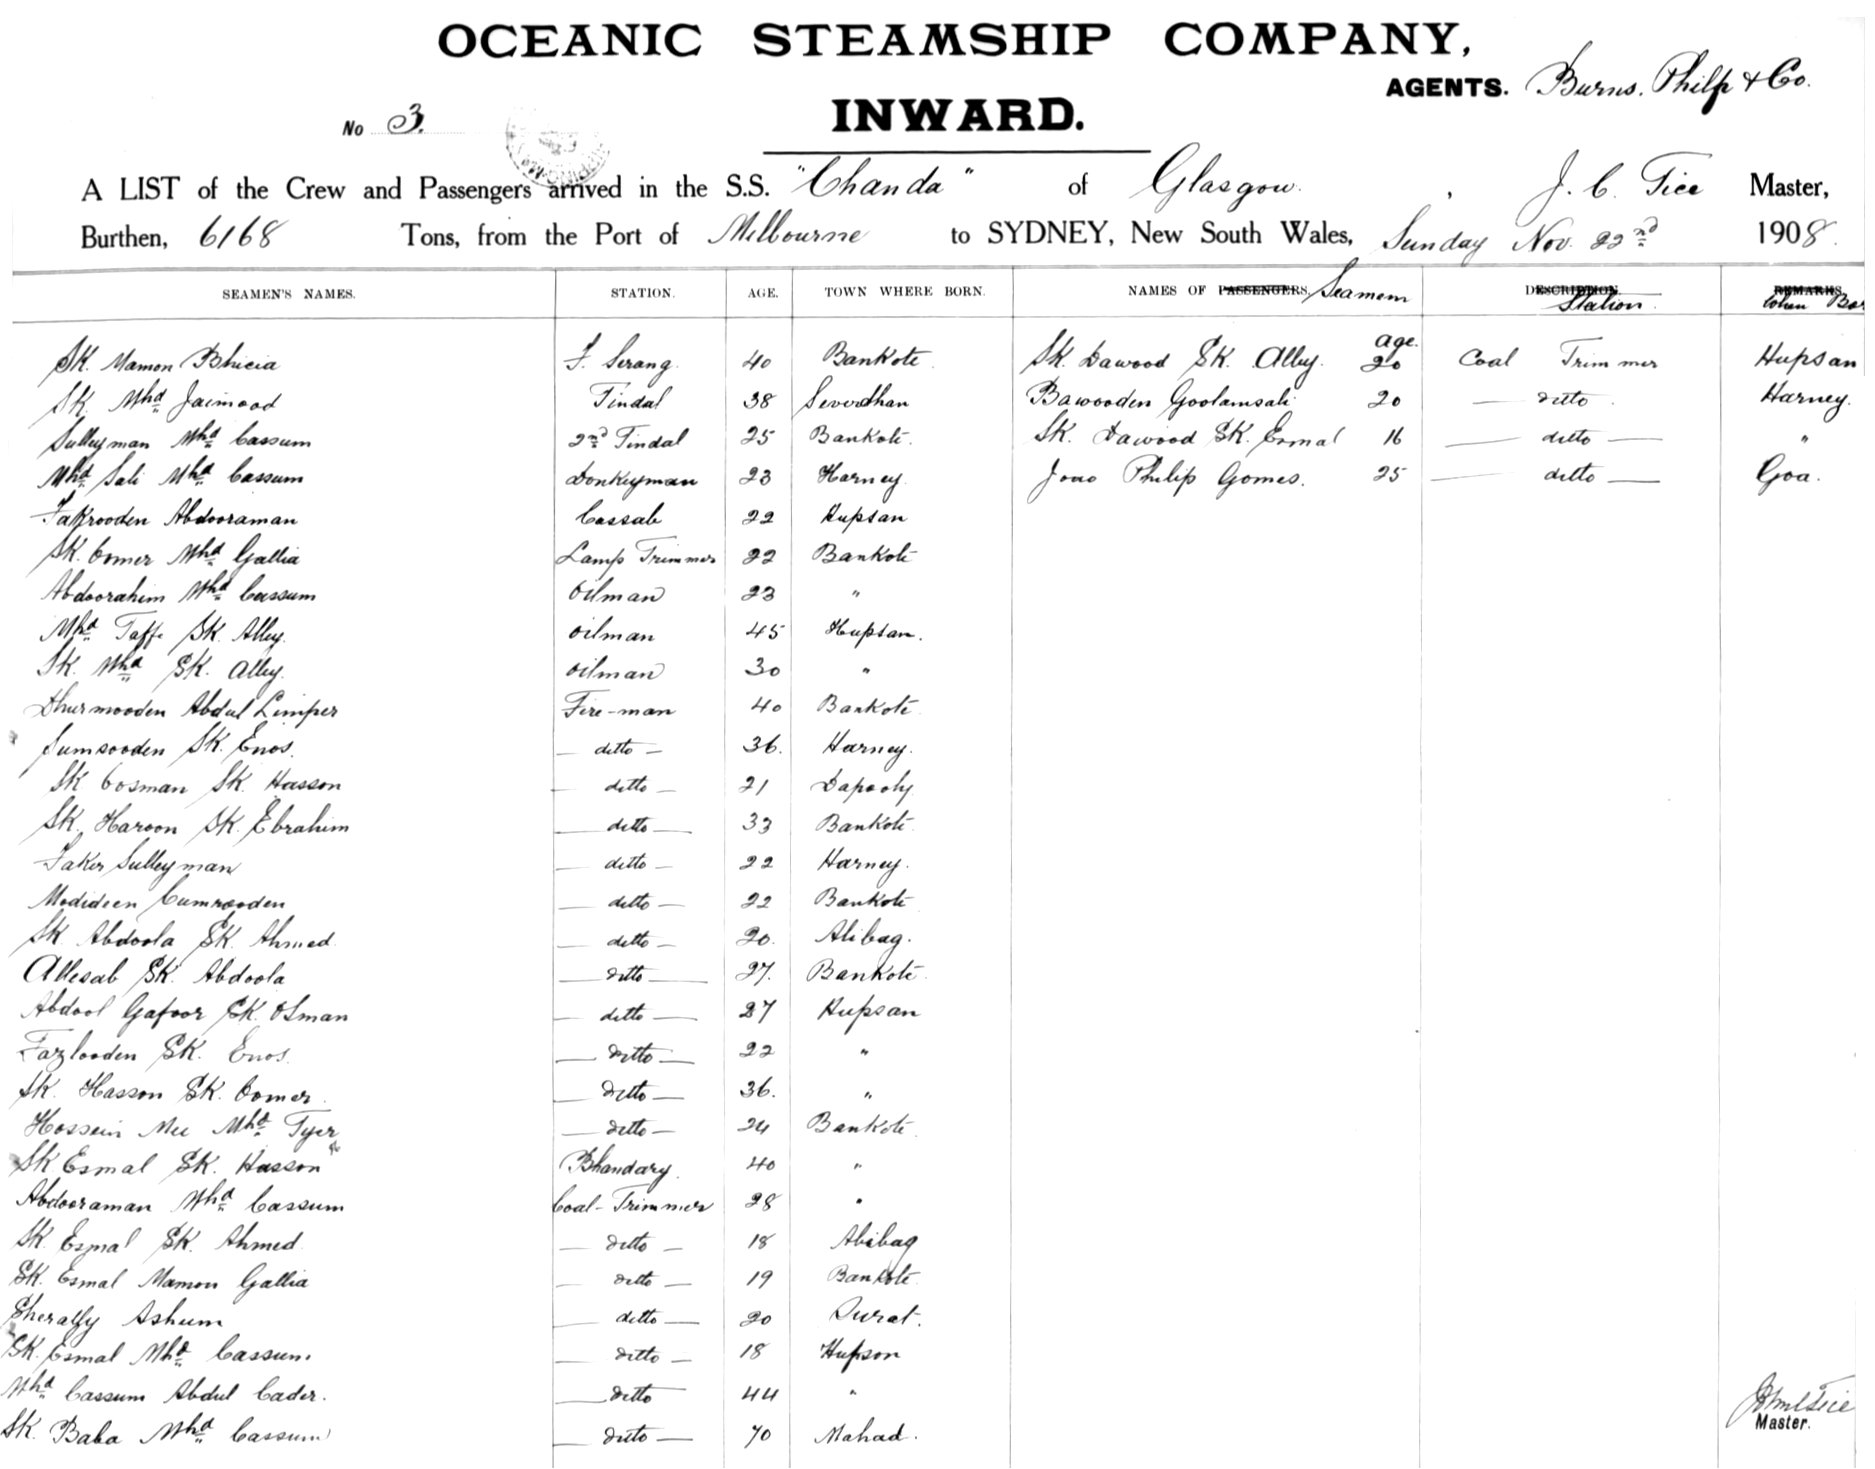 OCEANIC STEAMSHIP COMPANY,
AGENTS. Burns, Philp & Co.
INWARD.
No 3.
A LIST of the Crew and Passengers arrived in the S.S. "Chanda" of Glasgow. , J. C. Tice Master,
Burthen, 6168 Tons, from the Port of Melbourne to SYDNEY, New South Wales, Sunday Nov. 22nd 1908.
SEAMEN'S NAMES. STATION. AGE. TOWN WHERE BORN. NAMES OF PASSENGERS. Seamen DESCRIPTION. Station. REMARKS.
age.
SK. Mamon Bhicia F. Serang. 40 Bankote SK. Dawood SK. Alley. 20 Coal Trimmer Hupsan
SK. Mhd Jaimood Tindal 38 Severdhan Bawooden Goolamsali 20 — ditto Harney.
Sulleyman Mhd Cassum 2nd Tindal 25 Bankote. SK. Dawood SK. Esmal 16 — ditto — "
Mhd Sali Mhd Cassum Donkeyman 23 Harney Joao Philip Gomes. 25 — ditto — Goa.
Fakrooden Abdooraman Cassab 22 Hupsan
SK. Oomer Mhd Gallia Lamp Trimmer 22 Bankote
Abdoorahim Mhd Cassum Oilman 23 "
Mhd Taffe SK. Alley. Oilman 45 Hupsan.
SK. Mhd SK. Alley. Oilman 30 "
Dhurmooden Abdul Limper Fire-man 40 Bankote
Jumsooden SK. Enos. — ditto — 36. Harney.
SK Oosman SK. Hasson — ditto — 21 Dapooly
SK. Haroon SK. Ebrahim — ditto — 33 Bankote
Faker Sulleyman — ditto — 22 Harney.
Modideen Cumrooden — ditto — 22 Bankote
SK Abdoola SK. Ahmed — ditto — 20. Alibag.
Allesab SK. Abdoola — ditto — 27. Bankote
Abdool Gafoor SK. Osman — ditto — 27 Hupsan
Fazlooden SK. Enos. — ditto — 22 "
SK. Hasson SK. Oomer. — ditto — 36. "
Hossein Mhd Tyer — ditto — 24 Bankote
SK Esmal SK. Hasson Bhandary 40 "
Abdooraman Mhd Cassum Coal-Trimmer 28 "
SK. Esmal SK. Ahmed — ditto — 18 Alibag
SK. Esmal Mamon Gallia — ditto — 19 Bankote
Sherally Ashum — ditto — 20 Surat.
SK. Esmal Mhd Cassum — ditto — 18 Hupson
Mhd Cassum Abdul Cader. — ditto 44 "
SK. Baba Mhd Cassum — ditto — 70 Mahad.
Master.